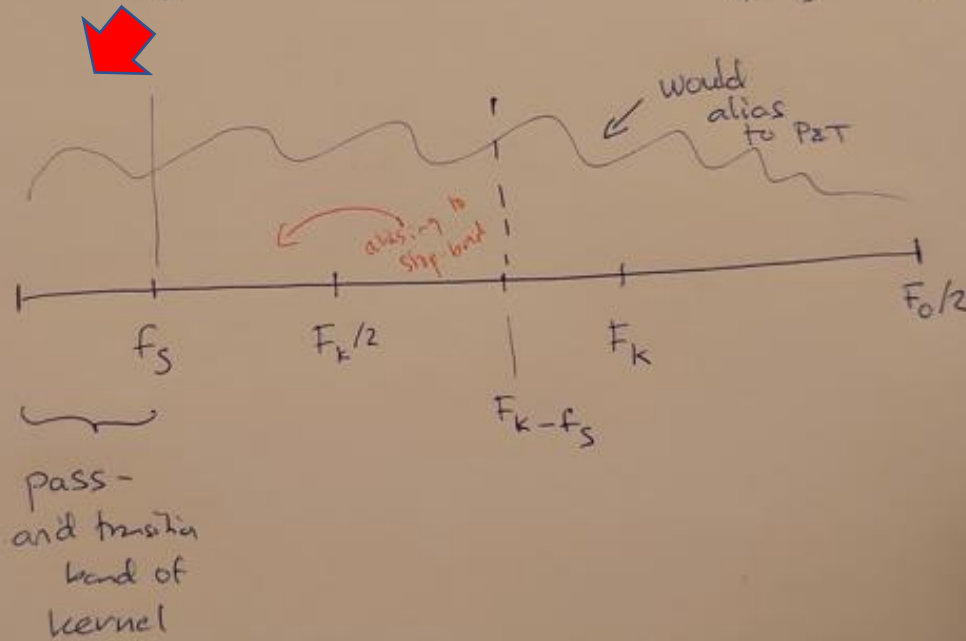 would
alias
to P&T
aliasing to
stop band
f_s
F_k/2
F_k
F_0/2
F_k-f_s
pass-
and transition
band of
kernel